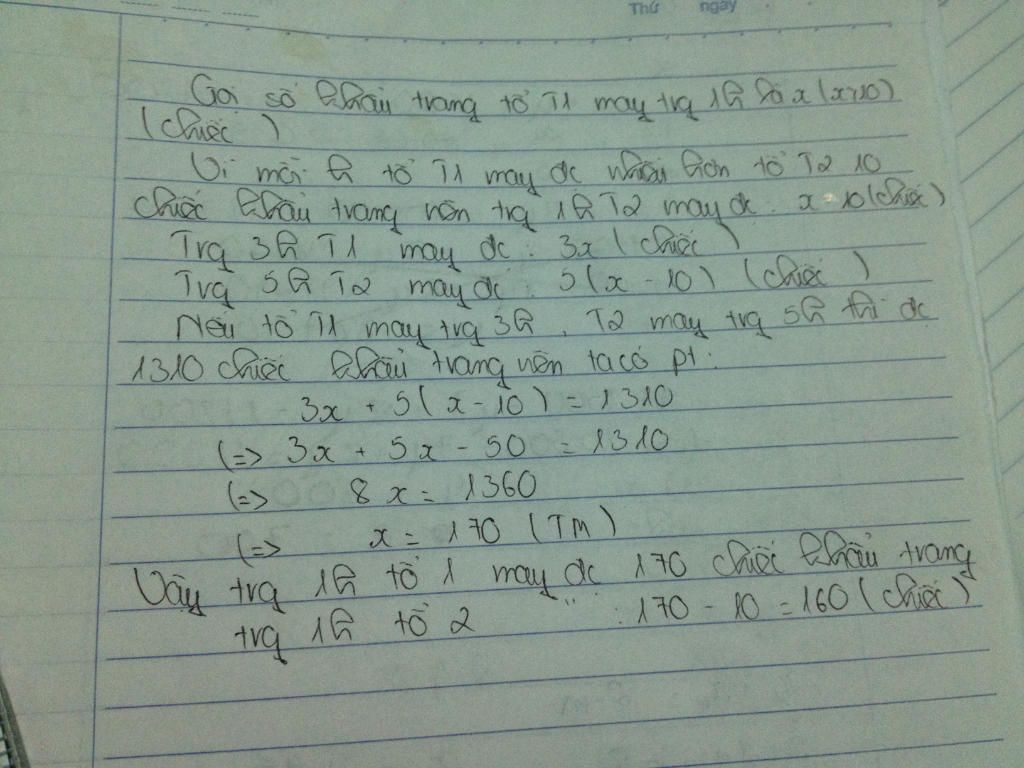 Thứ ngày
Gọi số khẩu trang tổ T1 may trg 1h là x (x>10)
(chiếc)
Vì mỗi h tổ T1 may đc nhiều hơn tổ T2 10
chiếc khẩu trang nên trg 1h T2 may đc: x-10 (chiếc)
Trg 3h T1 may đc: 3x (chiếc)
Trg 5h T2 may đc: 5(x-10) (chiếc)
Nếu tổ T1 may trg 3h, T2 may trg 5h thì đc
1310 chiếc khẩu trang nên ta có pt:
3x + 5(x-10) = 1310
(=> 3x + 5x - 50 = 1310
(=> 8x = 1360
(=> x = 170 (TM)
Vậy trg 1h tổ 1 may đc 170 chiếc khẩu trang
trg 1h tổ 2 " : 170 - 10 = 160 (chiếc)